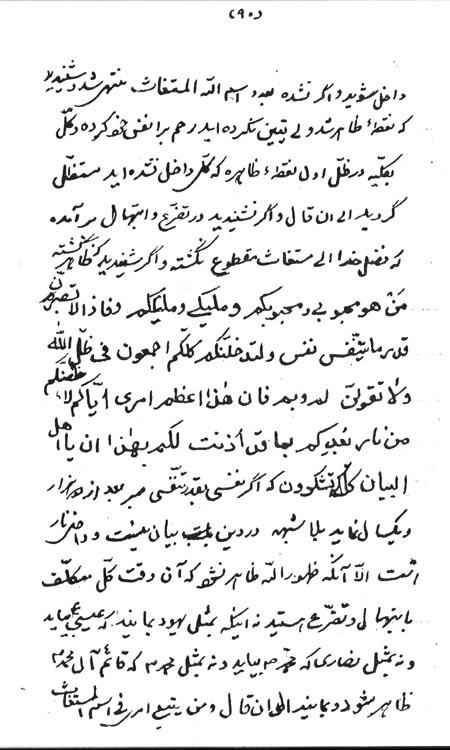 (۲۹۰)
داخل شوید و اگر نشده بعدد اسم الله المستغاث منتهی شد و شنیدید
که نقطهٔ ظاهر شد ولی یقین نکرده اید رحم بر انفس خود کرده و کل
بکلیه در ظل اول نقطهٔ ظاهره که کل داخل نشده اید مستظل
گردید الی ان قال و اگر نشنیدید در تضرع و ابتهال برآمده
که فضل خدا الی مستغاث مقطوع نگشته و اگر شنیدید که ظاهر گشته
من هو محبوبی و محبوبکم و ملیکی و ملیککم و فاذا لا تصبرن
قدر ما یتنفس نفس و لتدخلنکم کلکم اجمعون فی ظل الله
ولا تقولن لم و بم فان هذا اعظم امری ایاکم
من نار بعدکم بما قد اذنت لکم بهذا ان یا اهل
البیان کل تشکرون که اگر نفسی بقدر تنفسی صبر بعد از دو هزار
و یکسال نماید بلا شبهه در دین بیان نیست و داخل نار
است الا آنکه ظهور الله ظاهر نشود که آن وقت کل مکلف
بابتهال و تضرع هستید نه اینکه بمثل یهود بمانید که عیسی ع بیاید
و نه بمثل نصاری که محمد ص بیاید و نه بمثل محمد ص که قائم آل محمد ص
ظاهر شود و بمانید الی ان قال و من یتبع امری فی اسم المستغاث